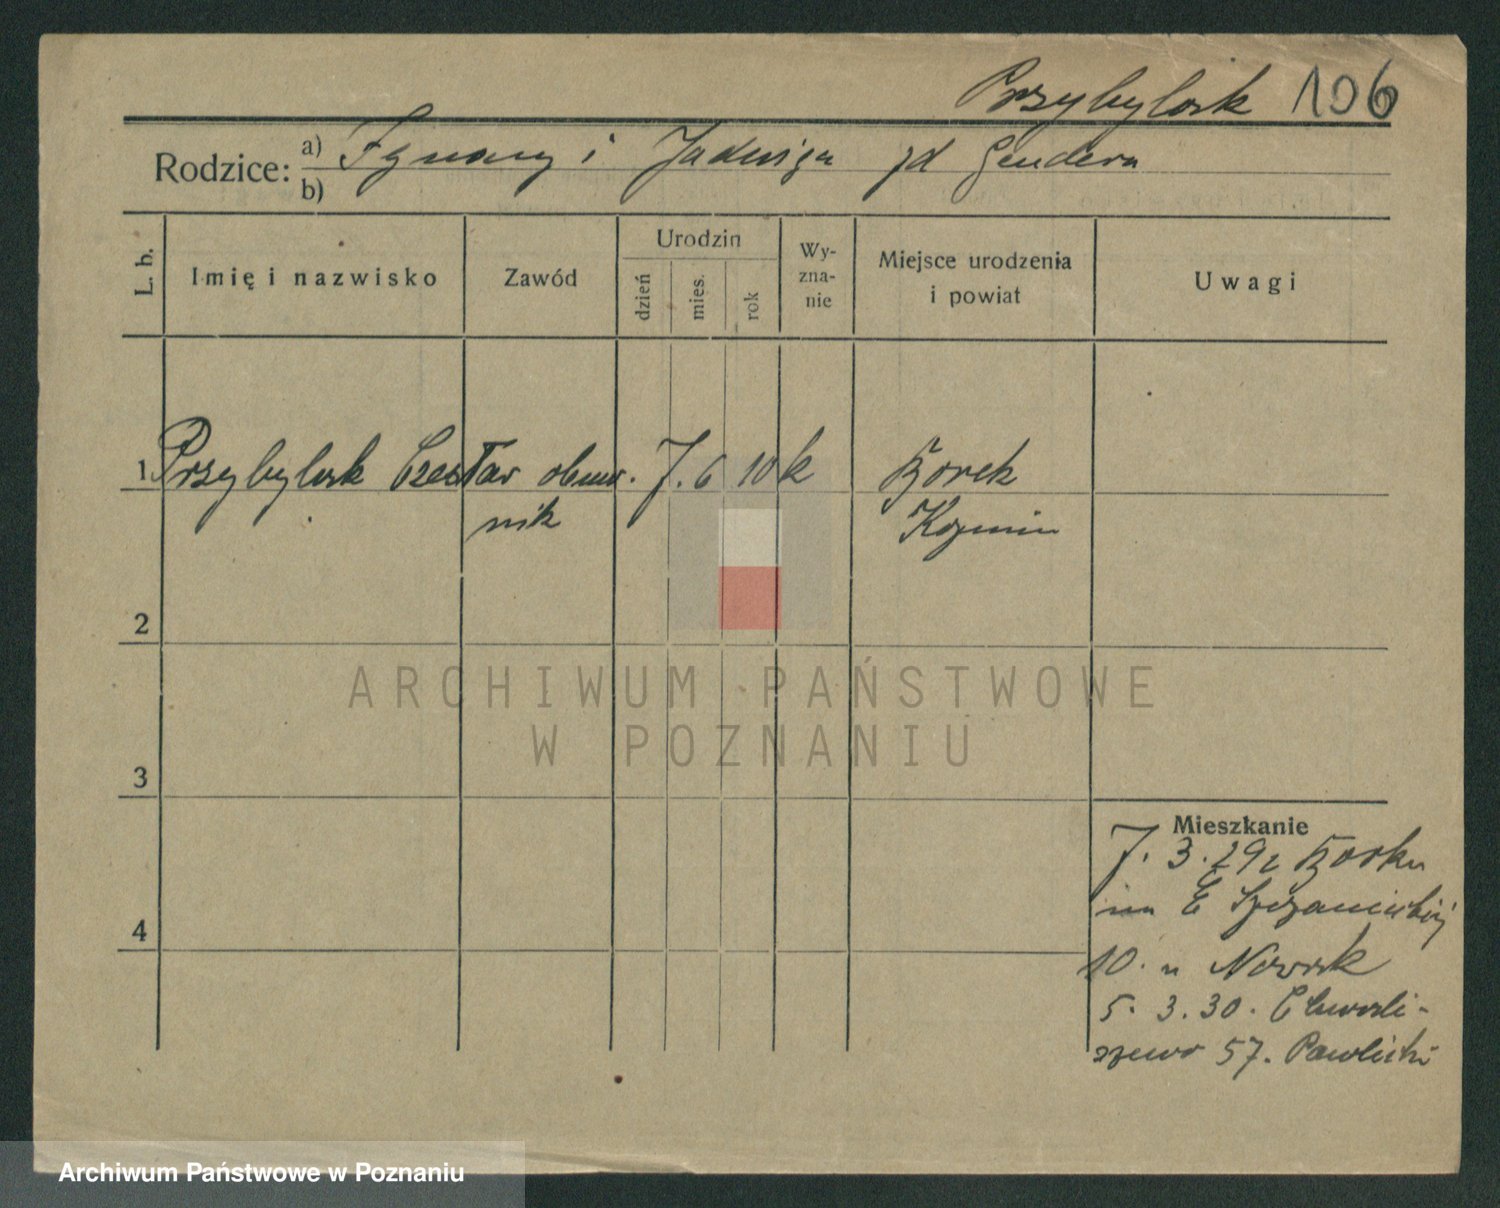 Przybylsk 106
Rodzice: a) Ignacy i Jadwiga zd Gendera
b)
L. b.
Imię i nazwisko
Zawód
Urodzin
dzień
mies.
rok
Wy-
zna-
nie
Miejsce urodzenia
i powiat
Uwagi
1 Przybylsk Czesław obuw. 7. 6 10 k Borek
nik Koźmin
2
3
4
Mieszkanie
7. 3. 29 z Borku
10. u Nowak
5. 3. 30. Chwali-
szewo 57. Pawlicki
ARCHIWUM PAŃSTWOWE
W POZNANIU
Archiwum Państwowe w Poznaniu